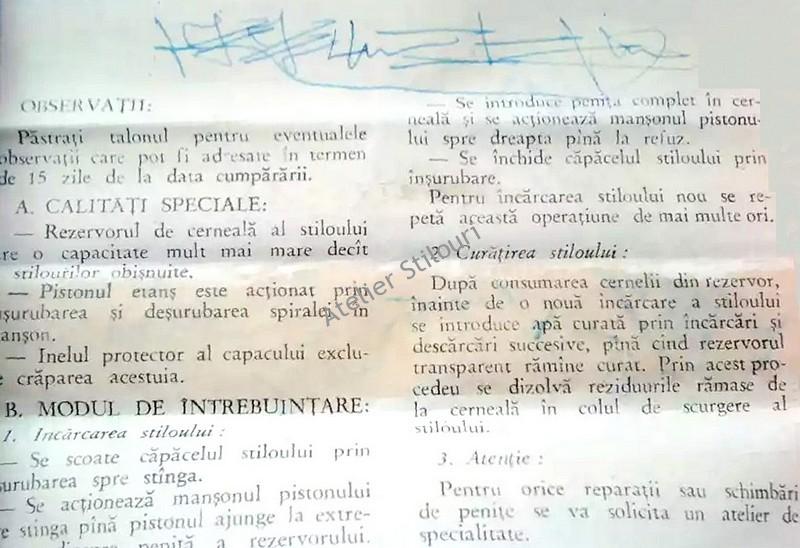 OBSERVAȚII:
Păstrați talonul pentru eventualele
observații care pot fi adresate în termen
de 15 zile de la data cumpărării.
A. CALITĂȚI SPECIALE:
— Rezervorul de cerneală al stiloului
re o capacitate mult mai mare decît
stilourilor obișnuite.
— Pistonul etanș este acționat prin
nșurubarea și deșurubarea spiralei în
anșon.
— Inelul protector al capacului exclu-
e crăparea acestuia.
B. MODUL DE ÎNTREBUINȚARE:
1. Incărcarea stiloului :
— Se scoate căpăcelul stiloului prin
șurubarea spre stînga.
— Se acționează manșonul pistonului
re stinga pînă pistonul ajunge la extre-
peniță a rezervorului.
— Se introduce penița complet în cer-
neală și se acționează manșonul pistonu-
lui spre dreapta pînă la refuz.
— Se închide căpăcelul stiloului prin
înșurubare.
Pentru încărcarea stiloului nou se re-
petă această operațiune de mai multe ori.
2. Curățirea stiloului :
După consumarea cernelii din rezervor,
înainte de o nouă incărcare a stiloului
se introduce apă curată prin încărcări și
descărcări succesive, pînă cind rezervorul
transparent rămîne curat. Prin acest pro-
cedeu se dizolvă reziduurile rămase de
la cerneală în colul de scurgere al
stiloului.
3. Atenție :
Pentru orice reparații sau schimbări
de penițe se va solicita un atelier de
specialitate.
Atelier Stilouri